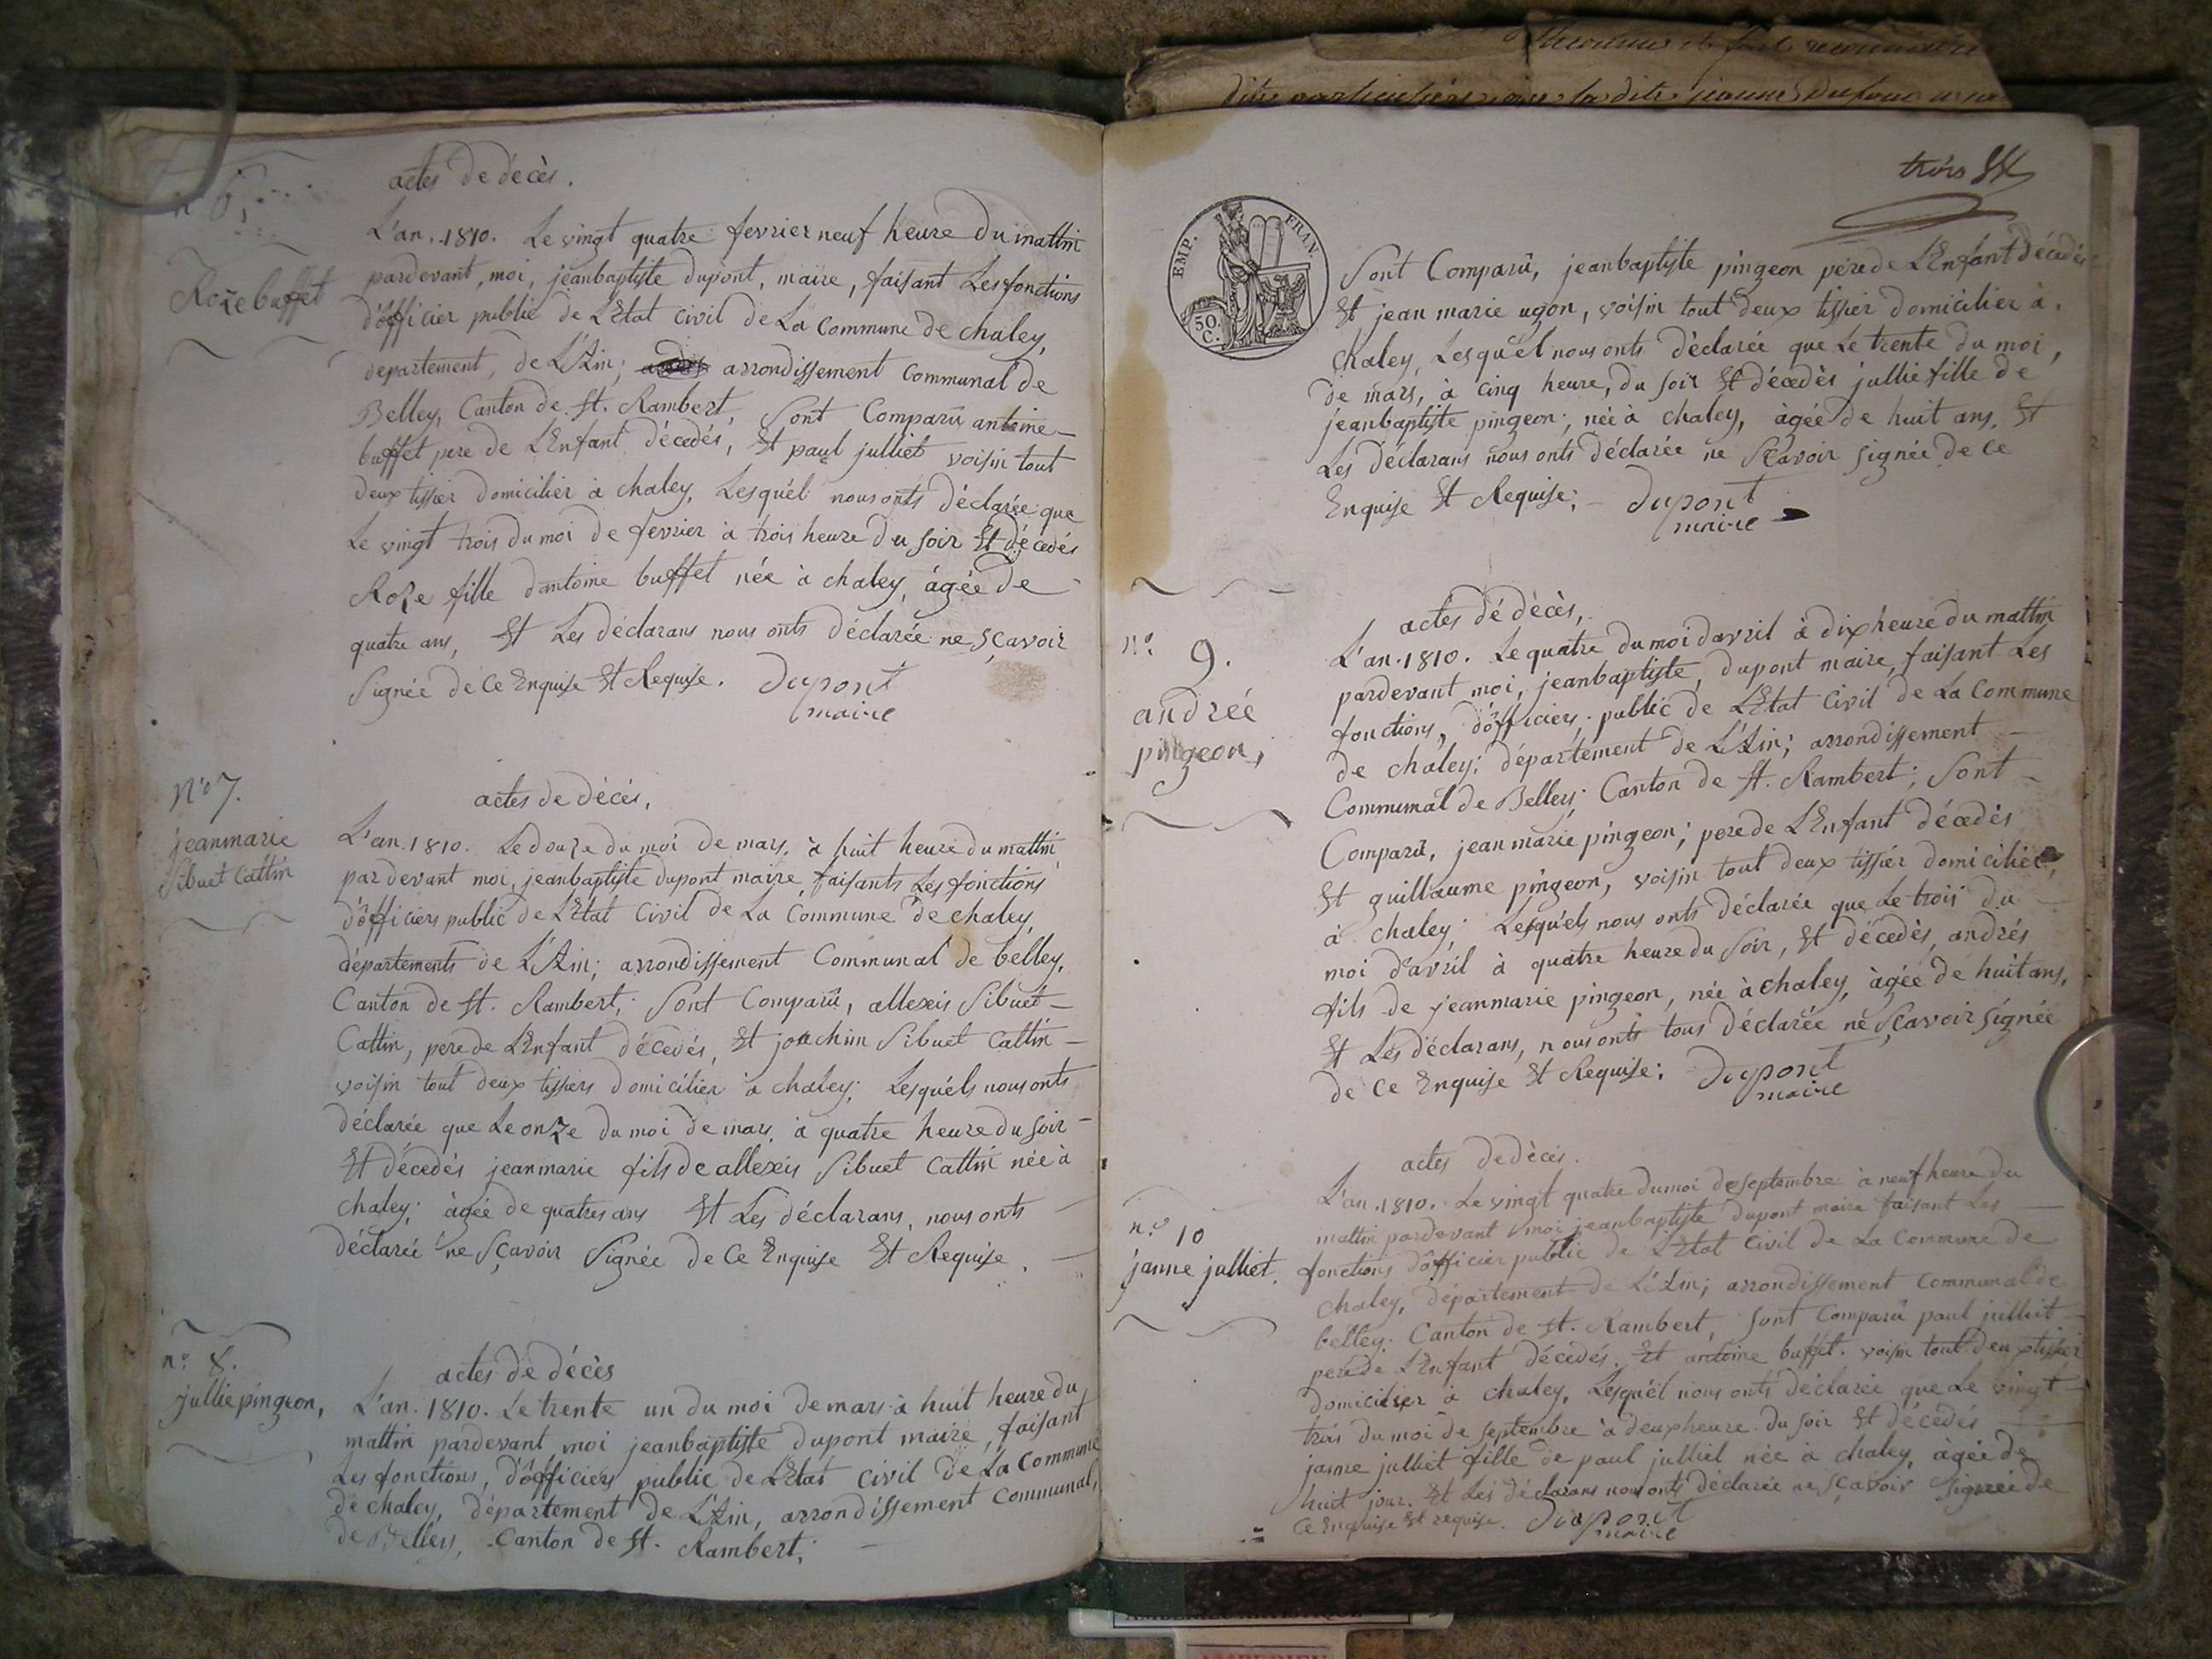 n° 6,
Roze buffet
actes de décès.
L'an. 1810. Le vingt quatre fevrier neuf heure du mattin
pardevant, moi, jeanbaptiste dupont, maire, faisant Les fonctions
d'officier public de L'Etat civil de La Commune de chaley,
departement, de L'Ain; arrondissement Communal de
Belley, Canton de St. Rambert, Sont Comparû antoine
buffet pere de L'Enfant décedés, Et paul julliet voisin tout
deux tissier domicilier à chaley, Lesquél nous onts déclarée que
Le vingt trois du moi de fevrier à trois heure du soir Et décedés
Roze fille dantoine buffet née à chaley, àgée de
quatre ans, Et Les déclarans nous onts déclarée ne sçavoir
Signée de Ce Enquise Et Requise. Dupont
maire
N° 7.
jeanmarie
Sibuet Cattin
actes de décés,
L'an. 1810. Le douze du moi de mars, à huit heure du mattin
pardevant moi, jeanbaptiste dupont maire, faisants Les fonctions
d'officiers public de L'Etat Civil de La Commune de chaley,
départements de L'Ain; arrondissement Communal de belley,
Canton de St. Rambert; Sont Comparû, allexis Sibuet
Cattin, pere de L'Enfant décedés, Et joachim Sibuet Cattin
voisin tout deux tissiers domicilier à chaley; Lesquéls nous onts
déclarée que Le onze du moi de mars, à quatre heure du soir
Et décedés jeanmarie fils de allexis Sibuet Cattin née à
chaley; àgée de quatres ans Et Les déclarans, nous onts
déclareé ne Sçavoir Signée de Ce Enquise Et Requise.
n° 8.
jullie pingeon,
actes de décès
L'an. 1810. Le trente un du moi de mars à huit heure du
mattin pardevant moi jeanbaptiste dupont maire, faisant
Les fonctions, d'officiers public de L'Etat Civil de La Commune
de chaley, département de L'Ain, arrondissement Communal,
de Belley, Canton de St. Rambert;
trois
EMP. FRAN.
50.
C.
Sont Comparû, jeanbaptiste pingeon pére de L'Enfant décedés
Et jean marie ugon, voisin tout deux tissier domicilier à
chaley, Lesquél nous onts déclarée que Le trente du moi,
de mars, à cinq heure, du soir Et décedès jullie fille de
jeanbaptiste pingeon; née à chaley, àgée de huit ans, Et
Les déclarans nous onts déclarée ne Sçavoir Signée de Ce
Enquise Et Requise; Dupont
maire
n° 9.
andrée
pingeon,
actes dé décès,
L'an. 1810. Le quatre du moi davril à dix heure du mattin
pardevant moi, jeanbaptiste, dupont maire, faisant Les
fonctions, d'officiers, public de L'Etat Civil de La Commune
de chaley; département de L'Ain; arrondissement
Communal de Belley; Canton de St. Rambert; Sont
Comparû, jean marie pingeon; pere de L'Enfant décedès
Et guillaume pingeon, voisin tout deux tissiér domicilier,
à chaley; Lesquéls nous onts déclarée que Le trois du
moi d'avril à quatre heure du soir, Et décedès, andrés
fils de jeanmarie pingeon, née à chaley, àgée de huit ans,
Et Les déclarans, nous onts tous déclarée ne Sçavoir Signée
de Ce Enquise Et Requise; Dupont
maire
n° 10
janne julliet.
actes de décès.
L'an. 1810. Le vingt quatre du moi de septembre à neuf heure du
mattin pardevant moi jeanbaptiste dupont maire faisant Les
fonctions d'officier public de L'Etat Civil de La Commune de
chaley, département de L'Ain; arrondissement Communal de
belley. Canton de St. Rambert, Sont Comparû paul julliet
pere de L'Enfant décedés. Et antoine buffet. voisin tout deux tissier
domicilier à chaley, Lesquél nous onts déclarée que Le vingt
trois du moi de septembre à deux heure du soir Et décedés
janne julliet fille de paul julliet née à chaley, àgée de
huit jour. Et Les déclarans nous onts déclarée ne Sçavoir Signée de
Ce Enquise Et requise. Dupont
maire